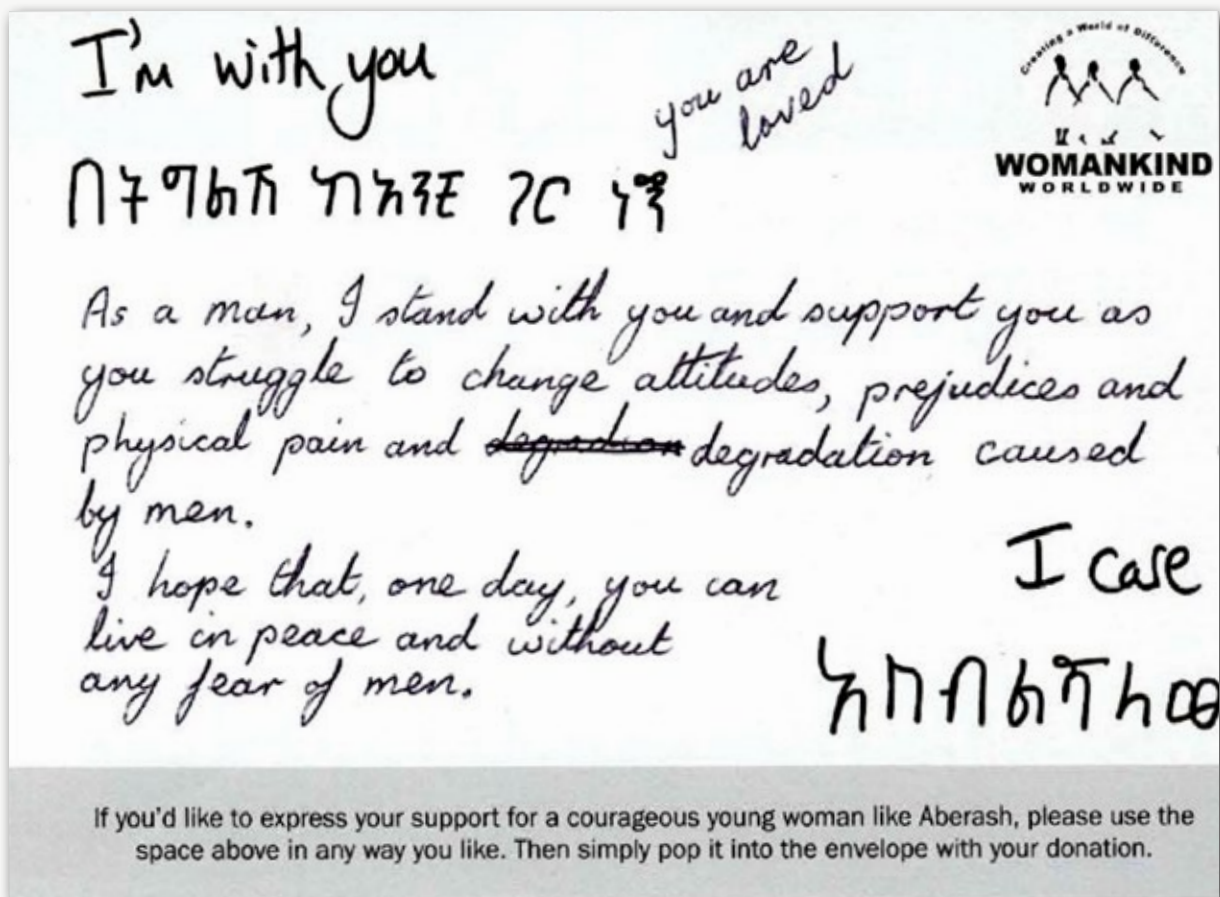 Creating a World of Difference
WOMANKIND
WORLDWIDE
I'm with you
you are
loved
በትግልሽ ከአንቺ ጋር ነኝ
As a man, I stand with you and support you as
you struggle to change attitudes, prejudices and
physical pain and degradation caused
by men.
I hope that, one day, you can
live in peace and without
any fear of men.
I care
አስብልሻለው
If you'd like to express your support for a courageous young woman like Aberash, please use the
space above in any way you like. Then simply pop it into the envelope with your donation.